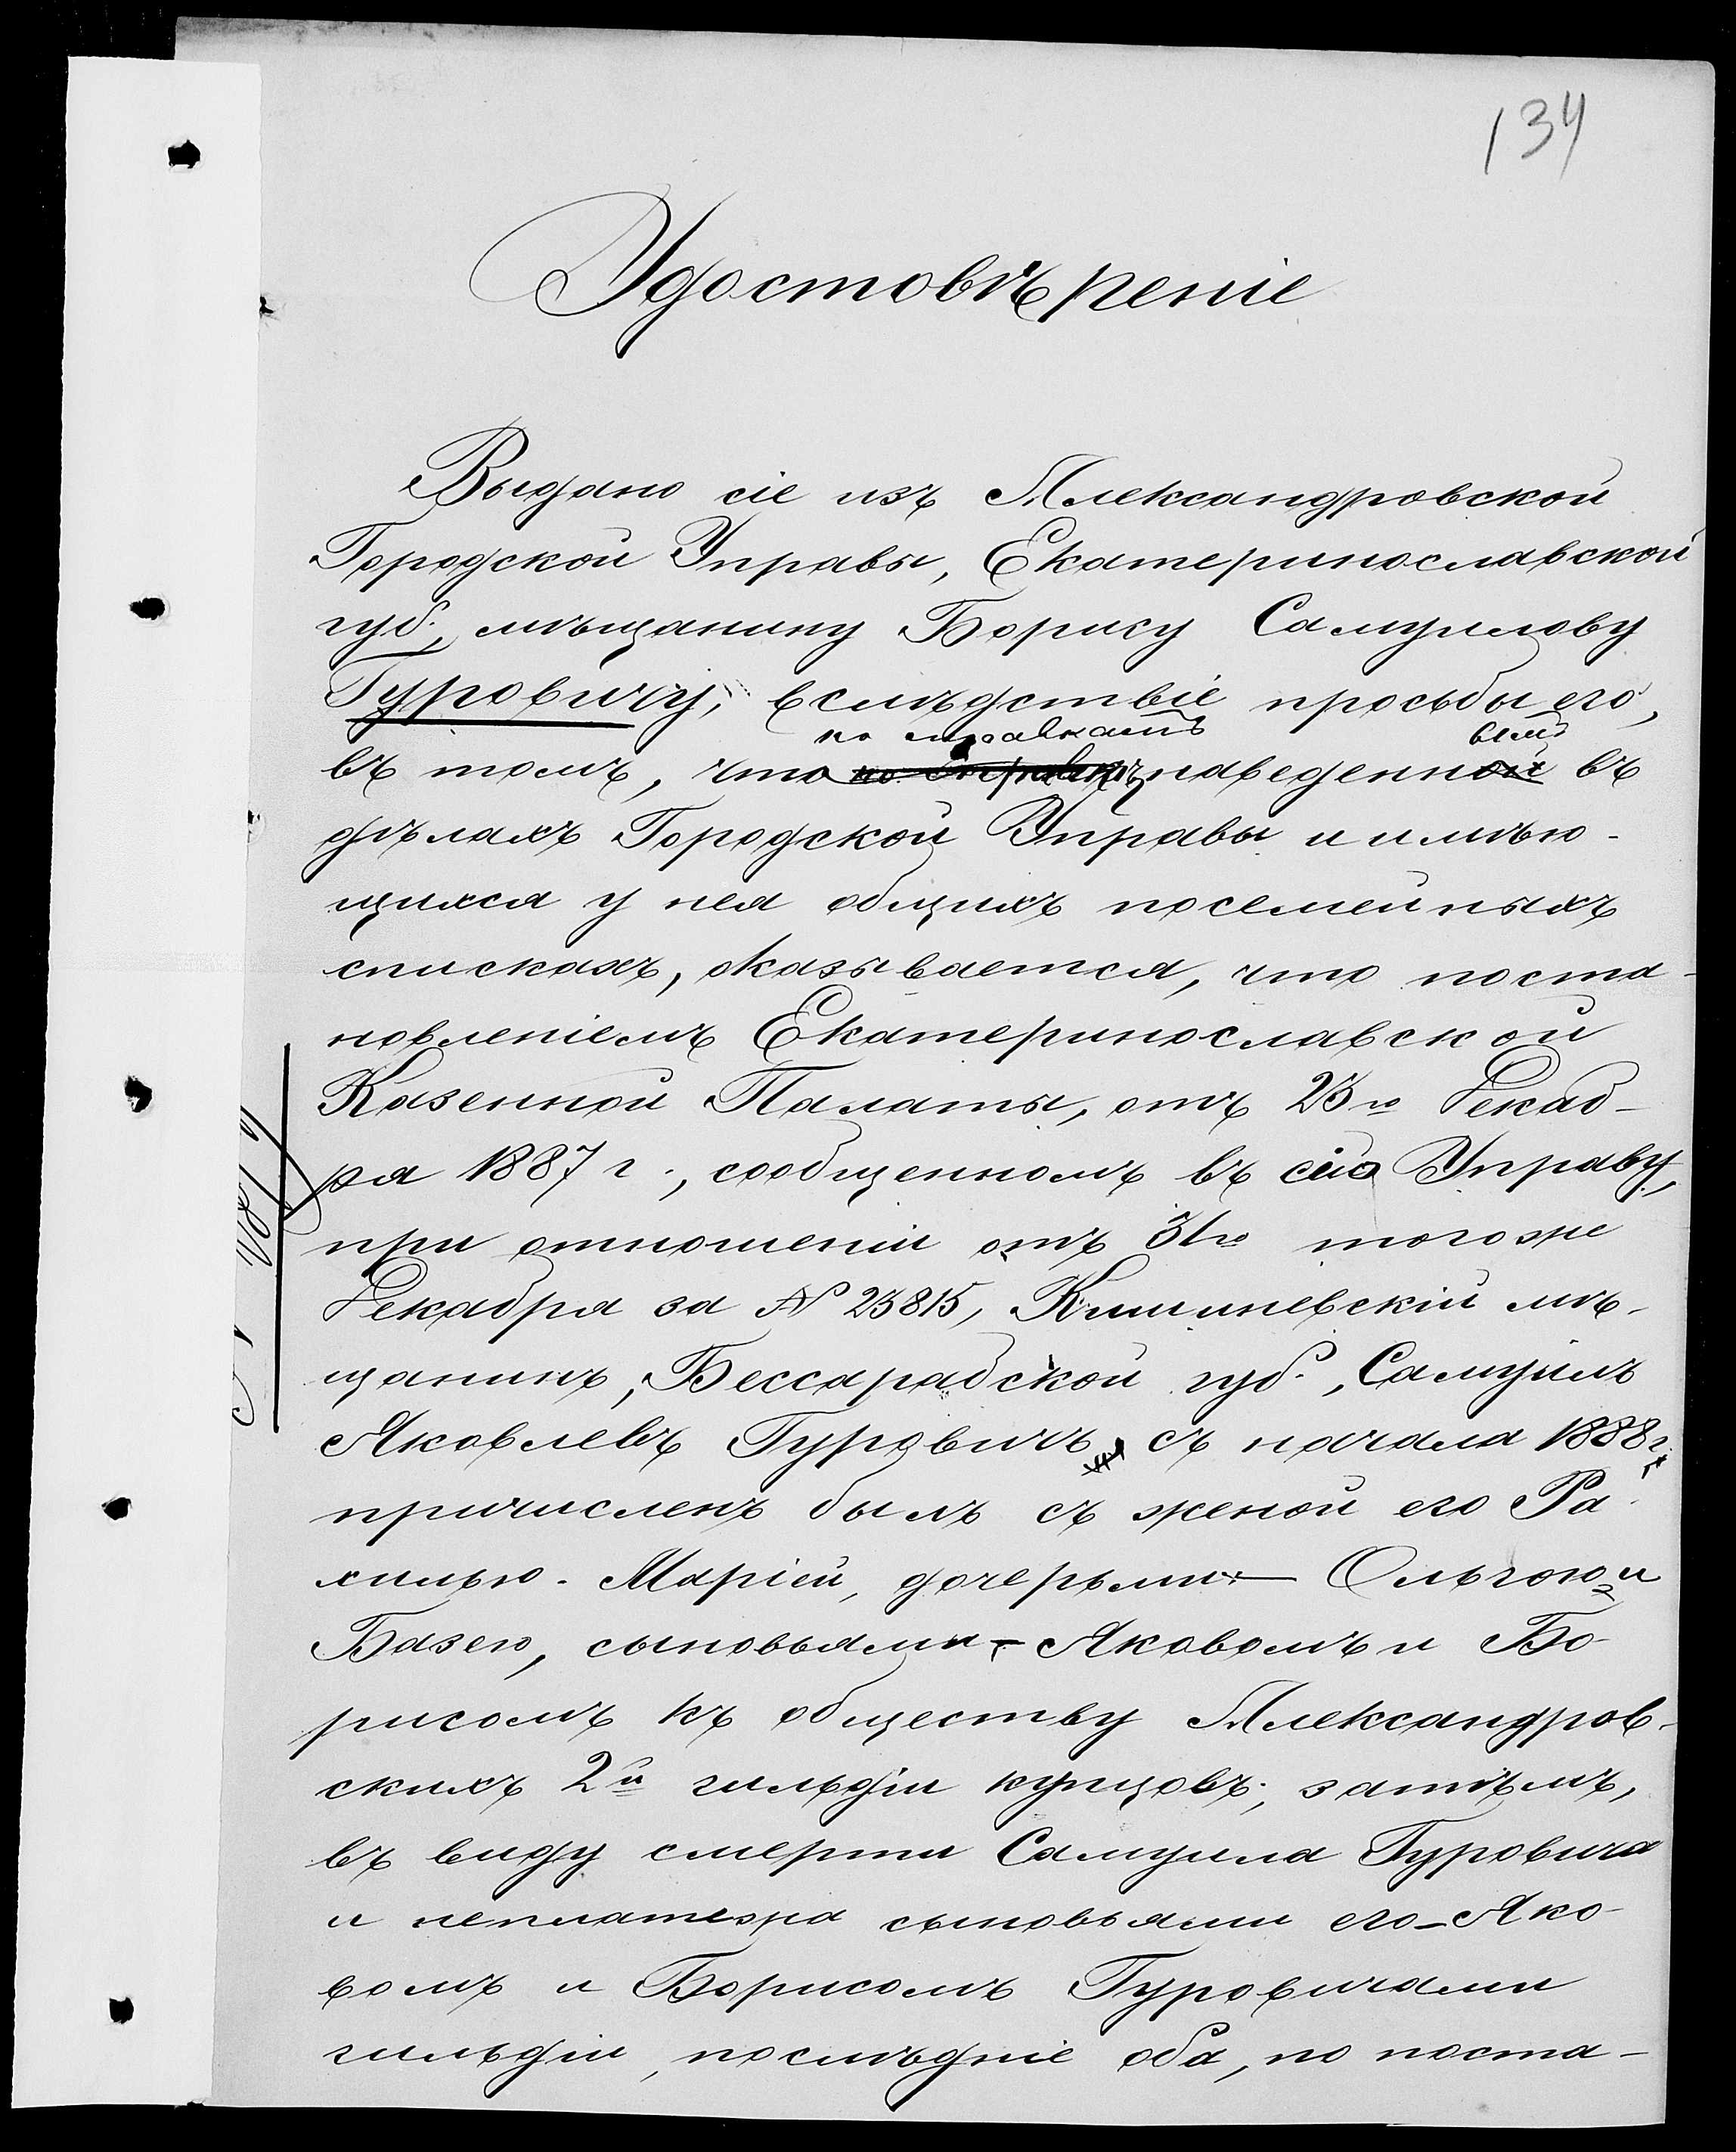 134
Удостовѣреніе
Выдано сіе изъ Александровской
Городской Управы, Екатеринославской
губ., мѣщанину Борису Самуилову
Гуровичу, вслѣдствіе просьбы его,
по справкамъ вымъ
въ томъ, что по справкѣ наведенной въ
дѣлахъ Городской Управы и имѣю-
щихся у нея общихъ посемейныхъ
спискахъ, оказывается, что поста-
новленіемъ Екатеринославской
Казенной Палаты, отъ 23го Декаб-
ря 1887 г., сообщенномъ въ сію Управу,
при отношеніи отъ 31го тогоже
Декабря за № 23815, Кишиневскій мѣ-
щанинъ, Бессарабской губ., Самуилъ
Яковлевъ Гуровичъ, съ начала 1888 г.
причисленъ былъ съ женой его Ра-
хилью-Маріей, дочерьми — Ольгою и
Базею, сыновьями - Яковомъ и Бо-
рисомъ къ обществу Александров-
скихъ 2й гильдіи купцовъ; затѣмъ,
въ виду смерти Самуила Гуровича
и неплатежа сыновьями его - Яко-
вомъ и Борисомъ Гуровичами
гильдіи, послѣдніе оба, по поста-